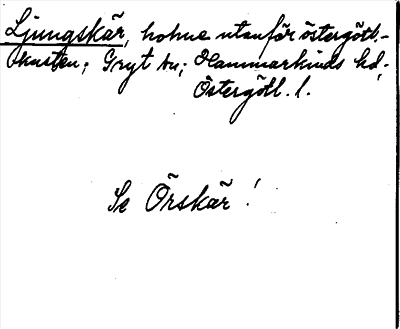 Ljungskär, holme utanför östergötl.-
kusten; Gryt sn; Hammarkinds hd,
Östergötl. l.
Se Örskär!